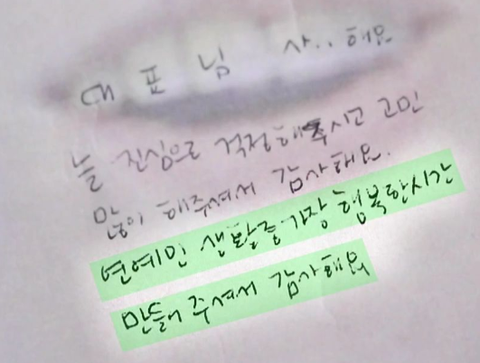 대표님 사..해요
늘 진심으로 걱정해주시고 고민
많이 해주셔서 감사해요.
연예인 생활중 가장 행복한시간
만들어 주셔서 감사해요